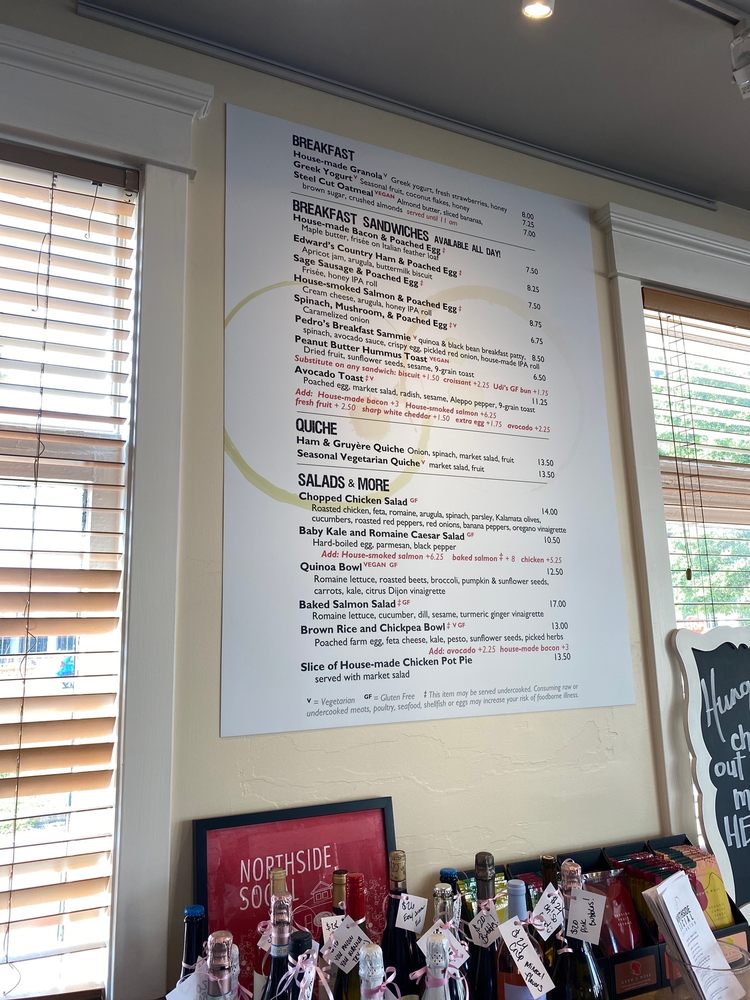 BREAKFAST
House-made Granola V Greek yogurt, fresh strawberries, honey 8.00
Greek Yogurt V Seasonal fruit, coconut flakes, honey 7.25
Steel Cut Oatmeal VEGAN Almond butter, sliced bananas,
brown sugar, crushed almonds served until 11 am 7.00
BREAKFAST SANDWICHES AVAILABLE ALL DAY!
House-made Bacon & Poached Egg ‡
Maple butter, frisée on Italian feather loaf 7.50
Edward's Country Ham & Poached Egg ‡
Apricot jam, arugula, buttermilk biscuit 8.25
Sage Sausage & Poached Egg ‡
Frisée, honey IPA roll 7.50
House-smoked Salmon & Poached Egg ‡
Cream cheese, arugula, honey IPA roll 8.75
Spinach, Mushroom, & Poached Egg ‡ V
Caramelized onion 6.75
Pedro's Breakfast Sammie V quinoa & black bean breakfast patty,
spinach, avocado sauce, crispy egg, pickled red onion, house-made IPA roll 8.50
Peanut Butter Hummus Toast VEGAN
Dried fruit, sunflower seeds, sesame, 9-grain toast 6.50
Substitute on any sandwich: biscuit +1.50 croissant +2.25 Udi's GF bun +1.75
Avocado Toast ‡ V 11.25
Poached egg, market salad, radish, sesame, Aleppo pepper, 9-grain toast
Add: House-made bacon +3 House-smoked salmon +6.25
fresh fruit + 2.50 sharp white cheddar +1.50 extra egg +1.75 avocado +2.25
QUICHE
Ham & Gruyère Quiche Onion, spinach, market salad, fruit 13.50
Seasonal Vegetarian Quiche V market salad, fruit 13.50
SALADS & MORE
Chopped Chicken Salad GF 14.00
Roasted chicken, feta, romaine, arugula, spinach, parsley, Kalamata olives,
cucumbers, roasted red peppers, red onions, banana peppers, oregano vinaigrette
Baby Kale and Romaine Caesar Salad GF 10.50
Hard-boiled egg, parmesan, black pepper
Add: House-smoked salmon +6.25 baked salmon ‡ + 8 chicken +5.25
Quinoa Bowl VEGAN GF 12.50
Romaine lettuce, roasted beets, broccoli, pumpkin & sunflower seeds,
carrots, kale, citrus Dijon vinaigrette
Baked Salmon Salad ‡ GF 17.00
Romaine lettuce, cucumber, dill, sesame, turmeric ginger vinaigrette
Brown Rice and Chickpea Bowl ‡ V GF 13.00
Poached farm egg, feta cheese, kale, pesto, sunflower seeds, picked herbs
Add: avocado +2.25 house-made bacon +3
Slice of House-made Chicken Pot Pie 13.50
served with market salad
V = Vegetarian GF = Gluten Free ‡ This item may be served undercooked. Consuming raw or
undercooked meats, poultry, seafood, shellfish or eggs may increase your risk of foodborne illness.
NORTHSIDE
SOCIAL
out
HE
$26
$20
$20